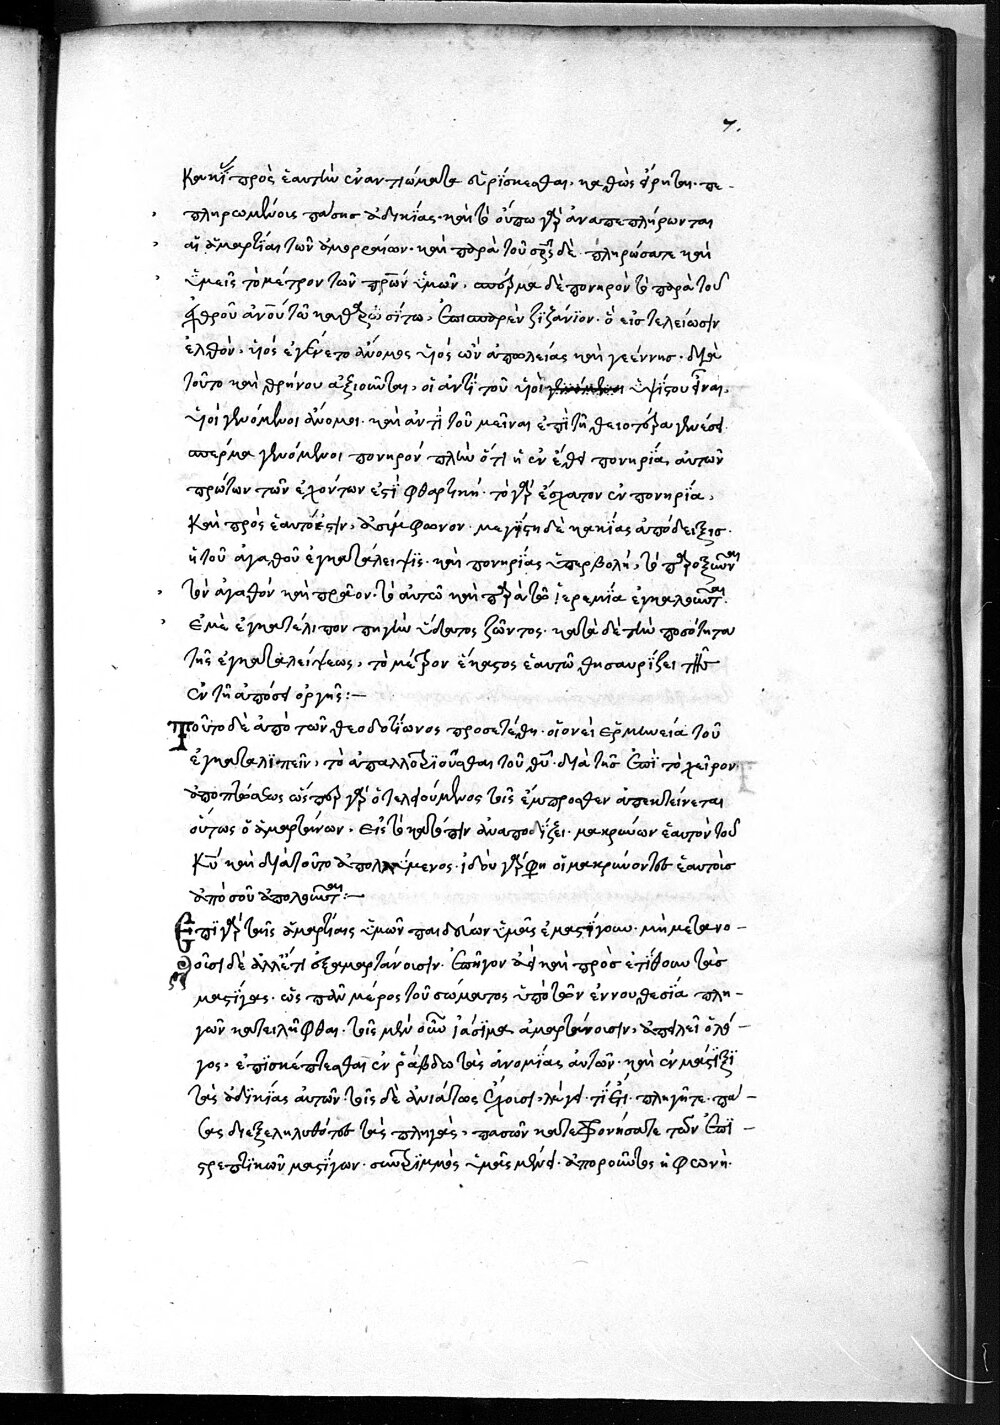 7.
κακία πρὸς ἑαυτὴν ἐναντιώματα εὑρίσκεσθαι, καθὼς εἴρηται· πε-
πληρωμένοις πάσης ἀδικίας· καὶ τὸ οὔπω γὰρ ἀναπεπλήρωνται
αἱ ἁμαρτίαι τῶν ἀμορραίων· καὶ παρὰ τοῦ σρσ δὲ πληρώσατε καὶ
ὑμεῖς τὸ μέτρον τῶν πρων ὑμῶν, σπέρμα δὲ πονηρὸν τὸ παρὰ τοῦ
ἐχθροῦ ἀνου τῷ καθαρῷ σίτῳ, ἐπισπαρὲν ζιζάνιον· ὃ εἰς τελείωσιν
ἐλθὸν, υἱὸς ἐγένετο ἄνομος υἱὸς ὢν ἀπωλείας καὶ γεέννης· διὰ
τοῦτο καὶ θρήνου ἀξιοῦνται, οἱ ἀντὶ τοῦ υἱοὶ ὑψίστου εἶναι,
υἱοὶ γενόμενοι ἄνομοι· καὶ ἀντὶ τοῦ μεῖναι ἐπὶ τῇ θειοτέρᾳ γενέσει
σπέρμα γενόμενοι πονηρόν πλὴν ὅτι ἡ ἐν ἔθει πονηρία, αὐτῶν
πρῶτον τῶν ἐχόντων ἐστὶ φθαρτική· τὸ γὰρ ἔσχατον ἐν πονηρίᾳ,
καὶ πρὸς ἑαυτό ἐστιν, ἀσύμφωνον· μεγίστη δὲ κακίας ἀπόδειξις·
ἡ τοῦ ἀγαθοῦ ἐγκατάλειψις· καὶ πονηρίας ὑπερβολή, τὸ παροξῦναι
τὸν ἀγαθὸν καὶ πρᾶον· τὸ αὐτὸ καὶ παρὰ τῷ ἱερεμίᾳ ἐγκαλοῦνται·
ἐμὲ ἐγκατέλιπον πηγὴν ὕδατος ζῶντος· κατὰ δὲ τὴν ποσότητα
τῆς ἐγκαταλείψεως, τὸ μέτρον ἕκαστος ἑαυτῷ θησαυρίζει τῆς
ἐν τῇ ἀπόσει ὀργῆς:—
Τοῦτο δὲ ἀπὸ τῶν θεοδοτίωνος προσετέθη· οἱονεὶ ἑρμηνεία τοῦ
ἐγκαταλιπεῖν, τὸ ἀπαλλοτριοῦσθαι τοῦ θυ διὰ τῆς ἐπὶ τὸ χεῖρον
ἀποπτώσεως ὥσπερ γὰρ ὁ τελειούμενος τοῖς ἔμπροσθεν ἐπεκτείνεται
οὕτως ὁ ἁμαρτάνων, εἰς τὸ κατόπιν ἀναποδίζει· μακρύνων ἑαυτὸν τοῦ
κυ καὶ διὰ τοῦτο ἀπολλύμενος· ἰδοὺ γὰρ φη οἱ μακρύνοντες ἑαυτοὺς
ἀπὸ σοῦ ἀπολοῦνται:—
Ἐπὶ γὰρ ταῖς ἁμαρτίαις ὑμῶν παιδεύων ὑμᾶς ἐμαστίγουν· μὴ μετανο-
οῦσι δὲ ἀλλ' ἔτι ἐξαμαρτάνουσιν· ἐπῆγον ἀεὶ καὶ προσετίθουν τὰς
μάστιγας· ὡς πᾶν μέρος τοῦ σώματος ὑπὸ τῶν ἐν νουθεσίᾳ πλη-
γῶν κατειλῆφθαι· τοῖς μὲν οὖν ἰάσιμα ἁμαρτάνουσιν, ἀπειλεῖ ὁ λό-
γος, ἐπισκέπτεσθαι ἐν ῥάβδῳ τὰς ἀνομίας αὐτῶν· καὶ ἐν μάστιξι
τὰς ἀδικίας αὐτῶν· τοῖς δὲ ἀνιάτως ἔχουσι, λέγει· τί ἔτι πληγῆτε· πά-
σας διεξεληλυθότες τὰς πληγὰς, πασῶν κατεφρονήσατε τῶν ἐπι-
στρεπτικῶν μαστίγων· συντριμμὸς ὑμᾶς μένει· ἀποροῦντος ἡ φωνὴ·